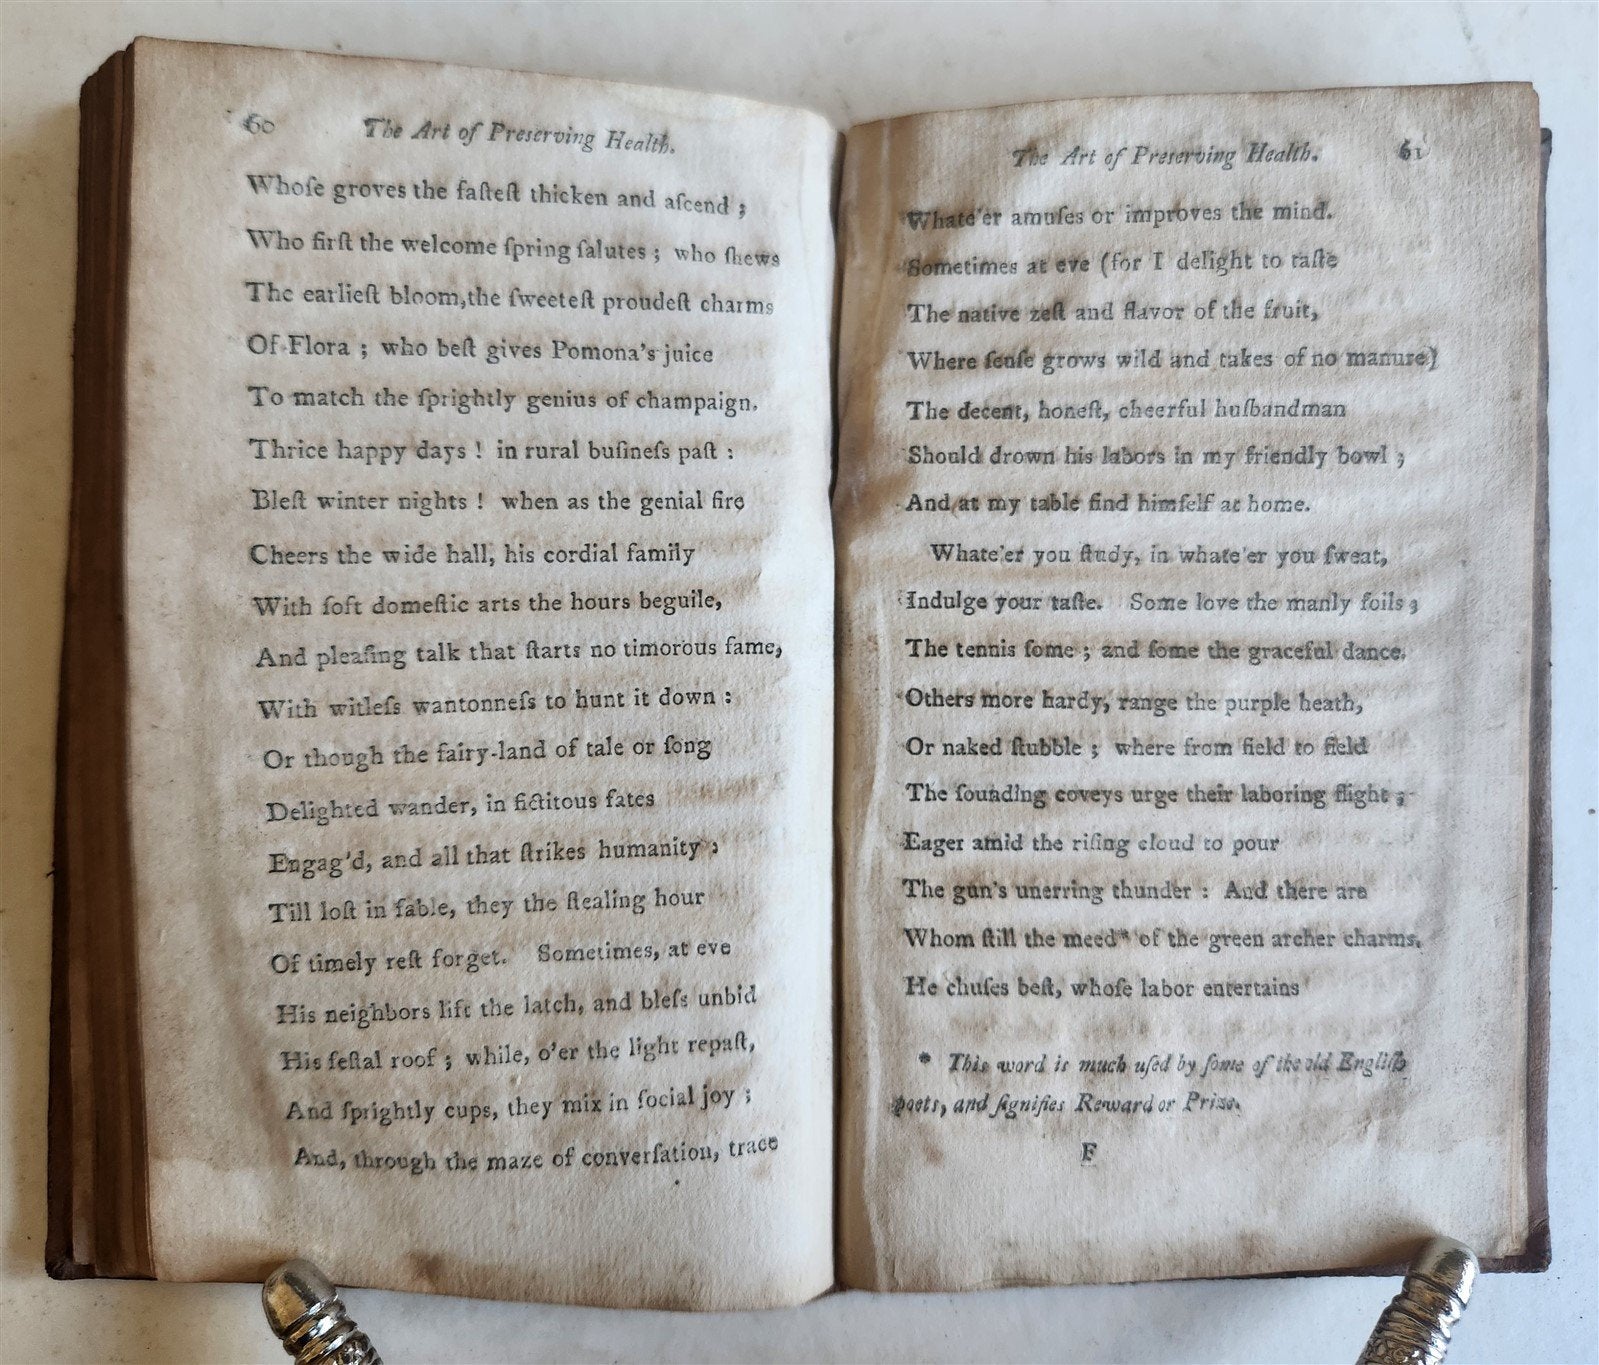 60
The Art of Preserving Health.
Whoſe groves the faſteſt thicken and aſcend ;
Who firſt the welcome ſpring ſalutes ; who ſhews
The earlieſt bloom,the ſweeteſt proudeſt charms
Of Flora ; who beſt gives Pomona's juice
To match the ſprightly genius of champaign.
Thrice happy days ! in rural buſineſs paſt :
Bleſt winter nights ! when as the genial fire
Cheers the wide hall, his cordial family
With ſoft domeſtic arts the hours beguile,
And pleaſing talk that ſtarts no timorous fame,
With witleſs wantonneſs to hunt it down :
Or though the fairy-land of tale or ſong
Delighted wander, in fictitous fates
Engag'd, and all that ſtrikes humanity ;
Till loſt in fable, they the ſtealing hour
Of timely reſt forget. Sometimes, at eve
His neighbors lift the latch, and bleſs unbid
His feſtal roof ; while, o'er the light repaſt,
And ſprightly cups, they mix in ſocial joy ;
And, through the maze of converſation, trace
The Art of Preserving Health.
61
Whate'er amuſes or improves the mind.
Sometimes at eve (for I delight to taſte
The native zeſt and flavor of the fruit,
Where ſenſe grows wild and takes of no manure)
The decent, honeſt, cheerful huſbandman
Should drown his labors in my friendly bowl ;
And at my table find himſelf at home.
Whate'er you ſtudy, in whate'er you ſweat,
Indulge your taſte. Some love the manly foils ;
The tennis ſome ; and ſome the graceful dance.
Others more hardy, range the purple heath,
Or naked ſtubble ; where from field to field
The ſounding coveys urge their laboring flight ;
Eager amid the riſing cloud to pour
The gun's unerring thunder : And there are
Whom ſtill the meed* of the green archer charms.
He chuſes beſt, whoſe labor entertains
* This word is much uſed by ſome of the old Engliſh
poets, and ſignifies Reward or Prize.
F